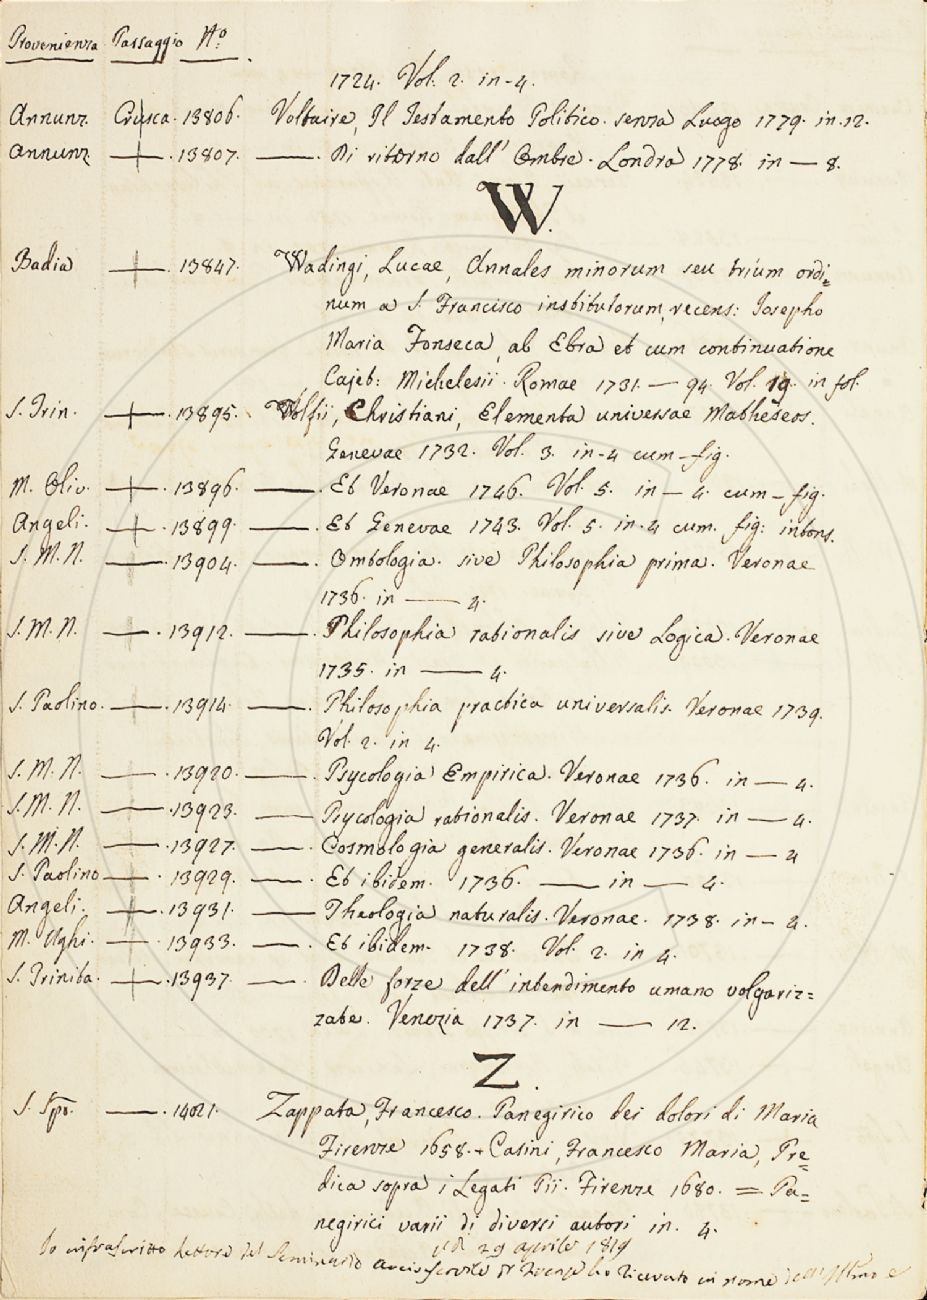 Provenienza Passaggio N.o
1724. Vol. 2. in-4.
Annunz. Crusca. 13806. Voltaire, Il Testamento Politico. senza Luogo 1779. in. 12.
Annunz. — . 13807. — . Di ritorno dall' Ombre. Londra 1778. in — 8.
W.
Badia — . 13847. Wadingi, Lucae, Annales minorum seu trium ordi=
num a S. Francisco institutorum, recens: Iosepho
Maria Fonseca, ab Ebra et cum continuatione
Cajet: Michelesii. Romae 1731. — 94. Vol. 19. in fol.
S. Trin. — . 13895. Wolfii, Christiani, Elementa universae Matheseos.
Genevae 1732. Vol. 3. in-4 cum-fig.
M. Oliv. — . 13896. — . Et Veronae 1746. Vol. 5. in — 4. cum-fig.
Angeli. — . 13899. — . Et Genevae 1743. Vol. 5. in. 4 cum. fig: intons.
S. M. N. — . 13904. — . Ontologia. sive Philosophia prima. Veronae
1736. in — 4.
S. M. N. — . 13912. — . Philosophia rationalis sive Logica. Veronae
1735. in — 4.
S. Paolino. — . 13914. — . Philosophia practica universalis. Veronae 1739.
Vol. 2. in 4.
S. M. N. — . 13920. — . Psycologia Empirica. Veronae 1736. in — 4.
S. M. N. — . 13923. — Psycologia rationalis. Veronae 1737. in — 4.
S. M. N. — . 13927. — . Cosmologia generalis. Veronae 1736. in — 4
S. Paolino — . 13929. — . Et ibidem. 1736. — in — 4.
Angeli. — . 13931. — Theologia naturalis. Veronae. 1738. in — 4.
M. Ughi. — . 13933. — . Et ibidem. 1738. Vol. 2. in 4.
S. Trinita. — . 13937. — . Delle forze dell' intendimento umano volgariz=
zate. Venezia 1737. in — 12.
Z.
S. Spo. — . 14021. Zappata, Francesco. Panegirico dei dolori di Maria
Firenze 1658. + Casini, Francesco Maria, Pre=
dica sopra i Legati Pii. Firenze 1680. = Pa=
negirici varii di diversi autori in. 4.
29 aprile 1819
Io infrascritto Rettore del Seminario arcivescovile di Firenze ho ricevuto in nome dell' Illmo e